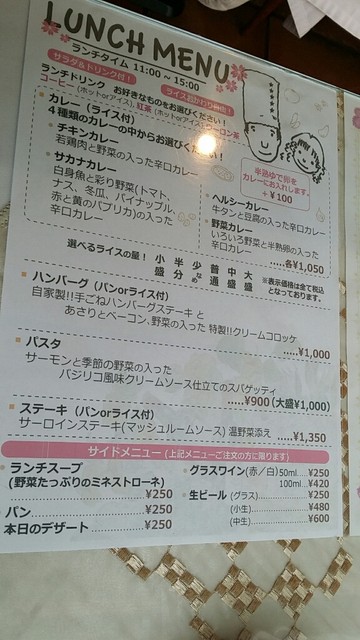 LUNCH MENU
ランチタイム 11:00～15:00
サラダ&ドリンク付！
ライスおかわり自由！
ランチドリンク お好きなものをお選びください！
コーヒー(ホットorアイス), 紅茶(ホットorアイス)ウーロン茶
カレー(ライス付)
4種類のカレーの中からお選びください！
チキンカレー
若鶏肉と野菜の入った辛口カレー
サカナカレー
白身魚と彩り野菜(トマト、
ナス、冬瓜、パイナップル、
赤と黄のパプリカ)の入った
辛口カレー
半熟ゆで卵を
カレーにお入れします。
+¥100
ヘルシーカレー
牛タンと豆腐の入った辛口カレー
野菜カレー
いろいろ野菜と半熟卵の入った
辛口カレー
.....各¥1,050
選べるライスの量！ 小盛 半分 少なめ 普通 中盛 大盛
※表示価格は全て税込
となっております。
ハンバーグ(パンorライス付)
自家製!!手ごねハンバーグステーキ と
あさりとベーコン、野菜の入った 特製!!クリームコロッケ
.....¥1,000
パスタ
サーモンと季節の野菜の入った
バジリコ風味クリームソース仕立てのスパゲッティ
.....¥900(大盛¥1,000)
ステーキ(パンorライス付)
サーロインステーキ(マッシュルームソース) 温野菜添え
.....¥1,350
サイドメニュー(上記メニューご注文の方に限ります)
ランチスープ
(野菜たっぷりのミネストローネ)
¥250
パン ¥250
本日のデザート ¥250
グラスワイン(赤／白)50ml....¥250
100ml....¥420
生ビール(グラス) ¥250
(小生) ¥480
(中生) ¥600